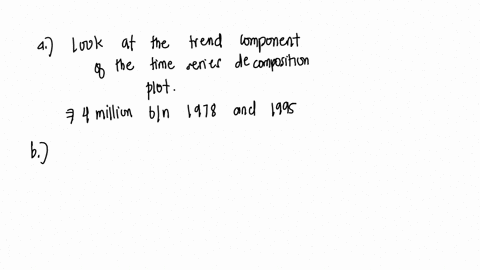 a.) Look at the trend component
of the time series decomposition
plot.
⇒ 4 million b/n 1978 and 1995
b.)